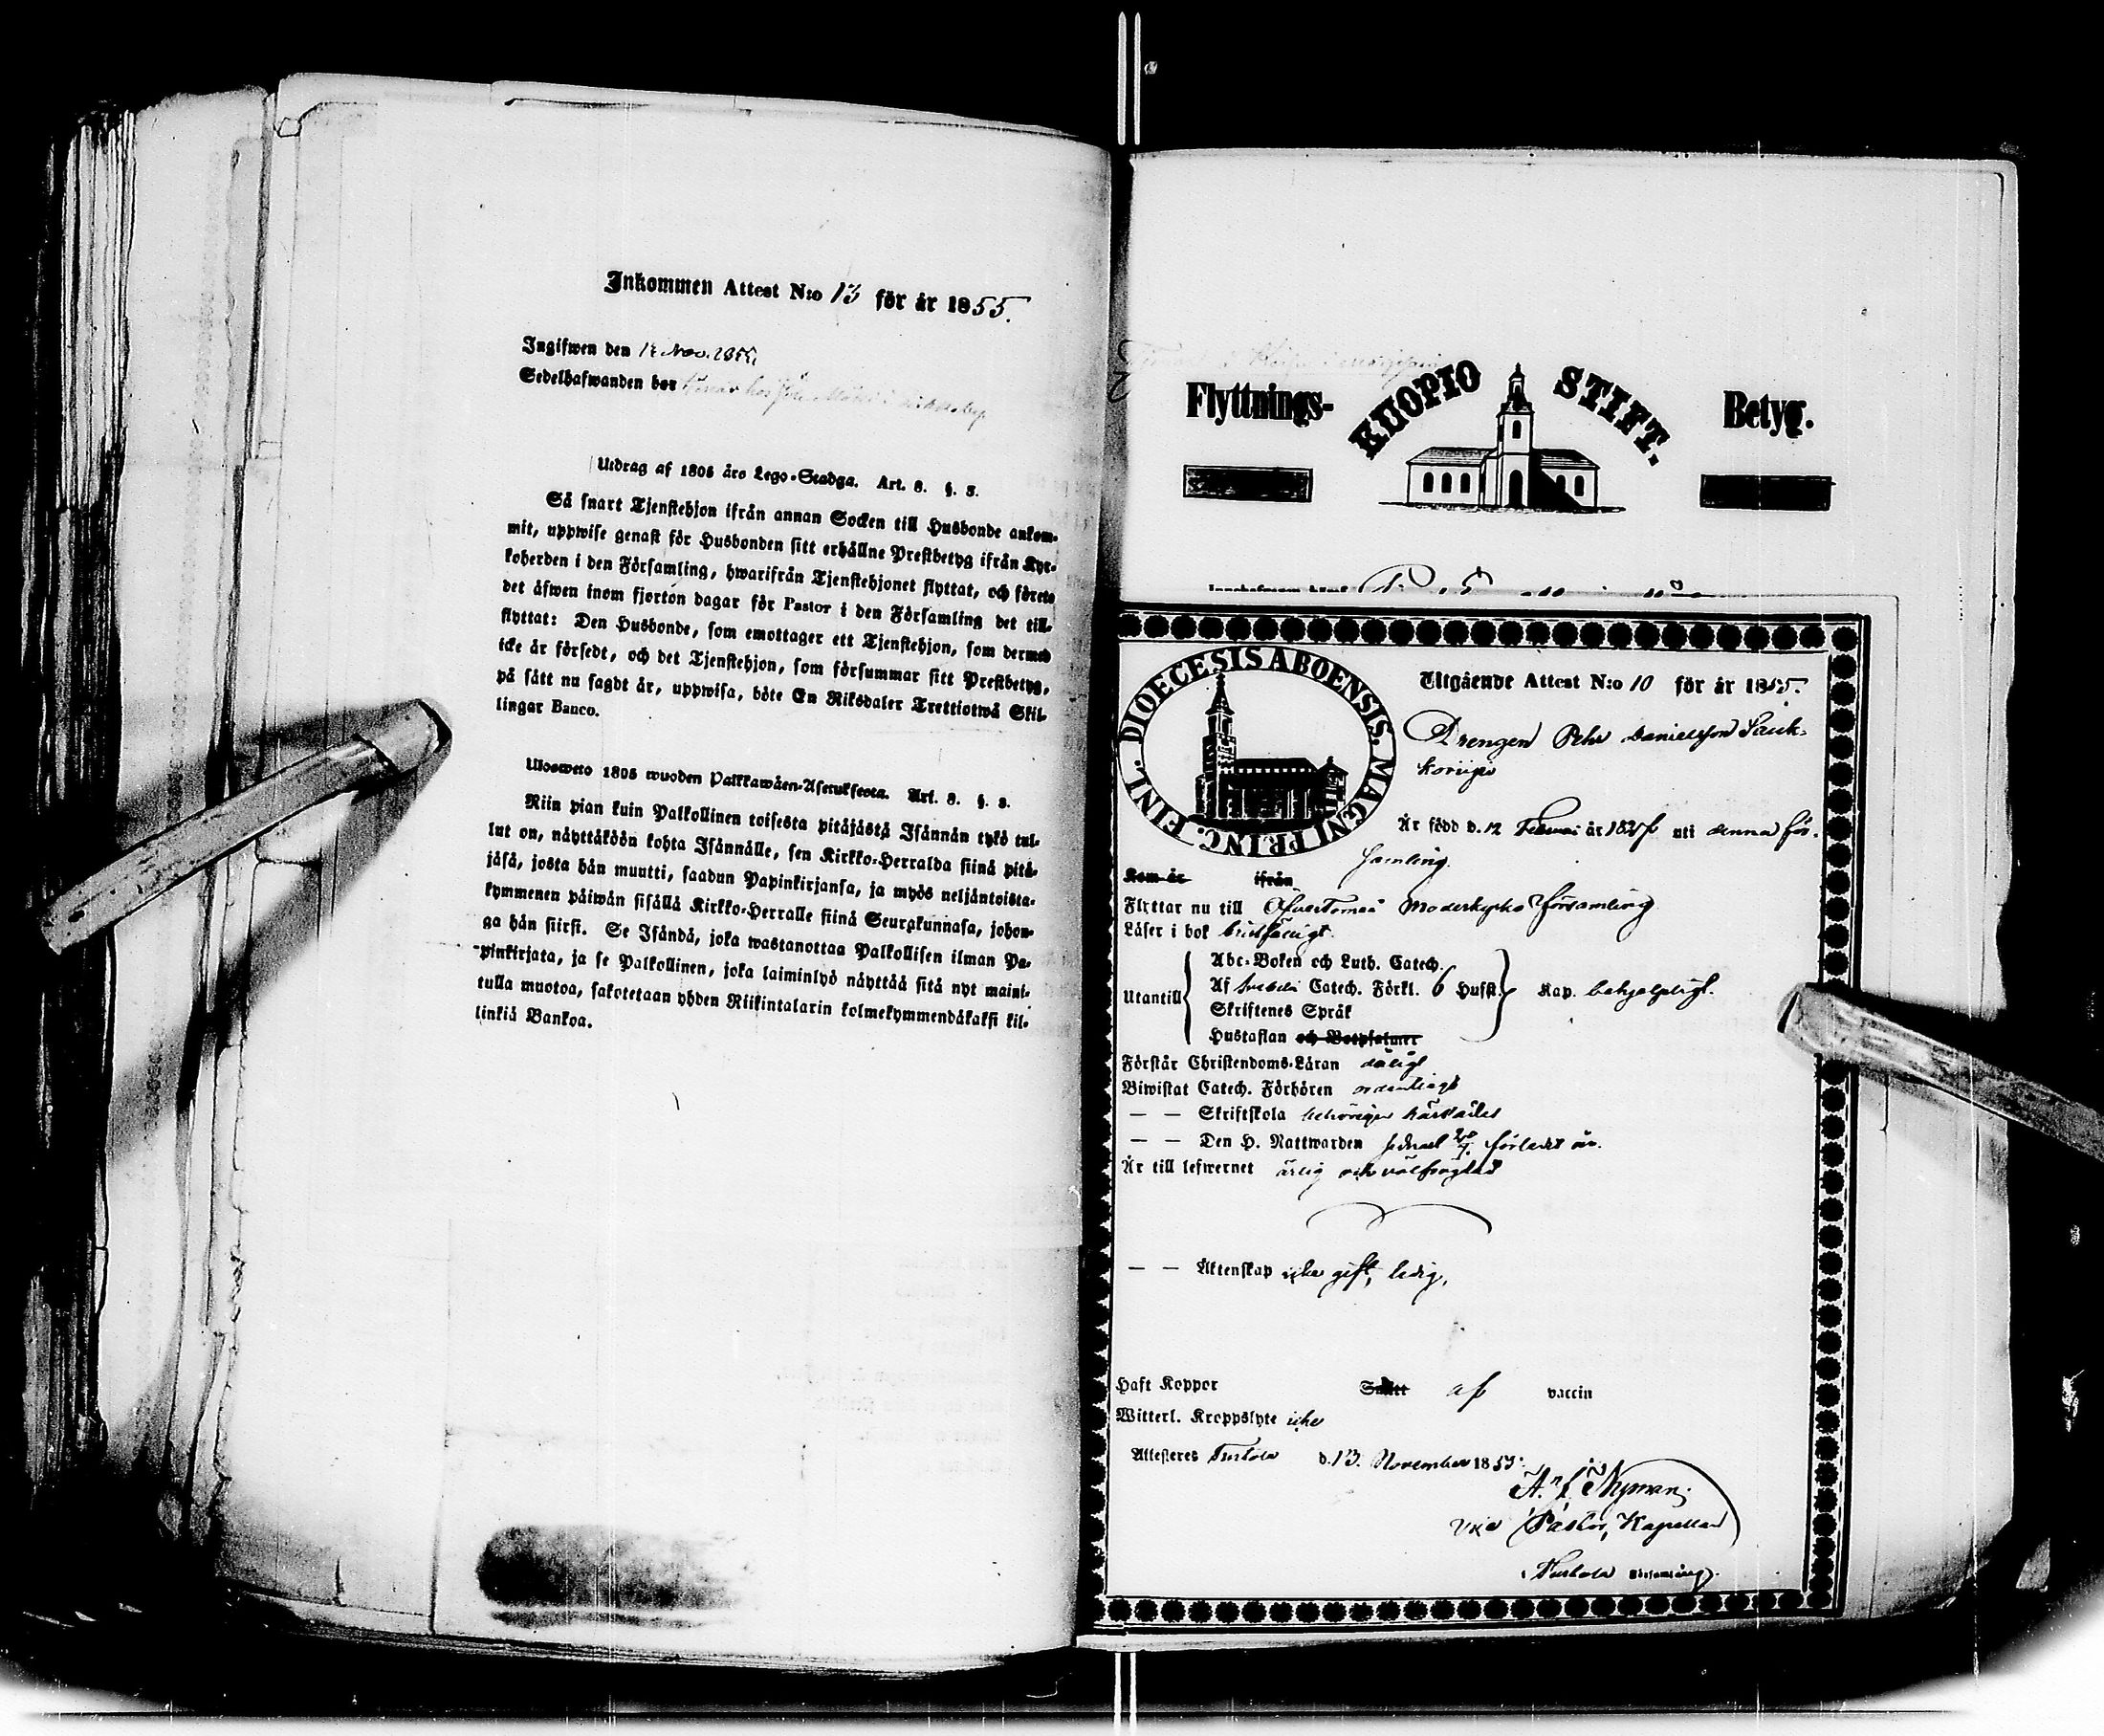 Inkommen Attest N:o 13 för år 1855.
Ingifwen den Nov. 1855
Sedelhafwanden bor
Utdrag af 1805 års Lego-Stadga. Art. 8. §. 5.
Så snart Tjenstehjon ifrån annan Socken till Husbonde ankom-
mit, uppwise genast för Husbonden sitt erhållne Prestbetyg ifrån Kyr-
koherden i den Församling, hwarifrån Tjenstehjonet flyttat, och förete
det åfwen inom fjorton dagar för Pastor i den Församling det till-
flyttat: Den Husbonde, som emottager ett Tjenstehjon, som dermed
icke är försedt, och det Tjenstehjon, som försummar sitt Prestbetyg,
på sätt nu sagdt är, uppwisa, böte En Riksdaler Trettiotwå Skil-
lingar Banco.
Ulosweto 1805 wuoden Palkkawäen-Asetuksesta. Art. 8. §. 5.
Niin pian kuin Palkollinen toisesta pitäjästä Isännän tykö tul-
lut on, näyttäköön kohta Isännälle, sen Kirkko-Herralda siinä pitä-
jäsä, josta hän muutti, saadun Papinkirjansa, ja myös neljäntoista-
kymmenen päiwän sisällä Kirkko-Herralle siinä Seurakunnasa, johon-
ga hän siirsi. Se Isändä, joka wastanottaa Palkollisen ilman Pa-
pinkirjata, ja se Palkollinen, joka laiminlyö näyttää sitä nyt maini-
tulla muotoa, sakotetaan yhden Riikintalarin kolmekymmendäkaksi kil-
linkiä Bankoa.
Flyttnings- KUOPIO STIFT. Betyg.
DIOECESIS ABOENSIS. MAGNI PRINC. FINL.
Utgående Attest N:o 10 för år 1855.
Drengen Pehr Danielsson Lauk-
korripi
Är född d. 12 Februari år 18 uti denna för-
samling.
Kom år ifrån
Flyttar nu till ÖfverTorneå Moderkyrko församling
Läser i bok bristfälligt.
Abc-Boken och Luth. Catech.
Utantill Af Svebelii Catech. Förkl. 6 Hufst. Kap. behjelpligt.
Skriftenes Språk
Hustaflan och Botpsalmer
Förstår Christendoms-Läran dåligt
Biwistat Catech. Förhören ordentligt
— — Skriftskola behörigen härstädes
— — Den H. Nattwarden förledet år.
Är till lefwernet ärlig och välfrägdad
— — Äktenskap icke gift, ledig,
Haft Koppor Smitt af vaccin
Witterl. Kroppslyte icke
Attesteres Turtola d. 13. November 1855.
A. J. Nyman.
Vice Pastor, Kapellan
i Turtola församling.